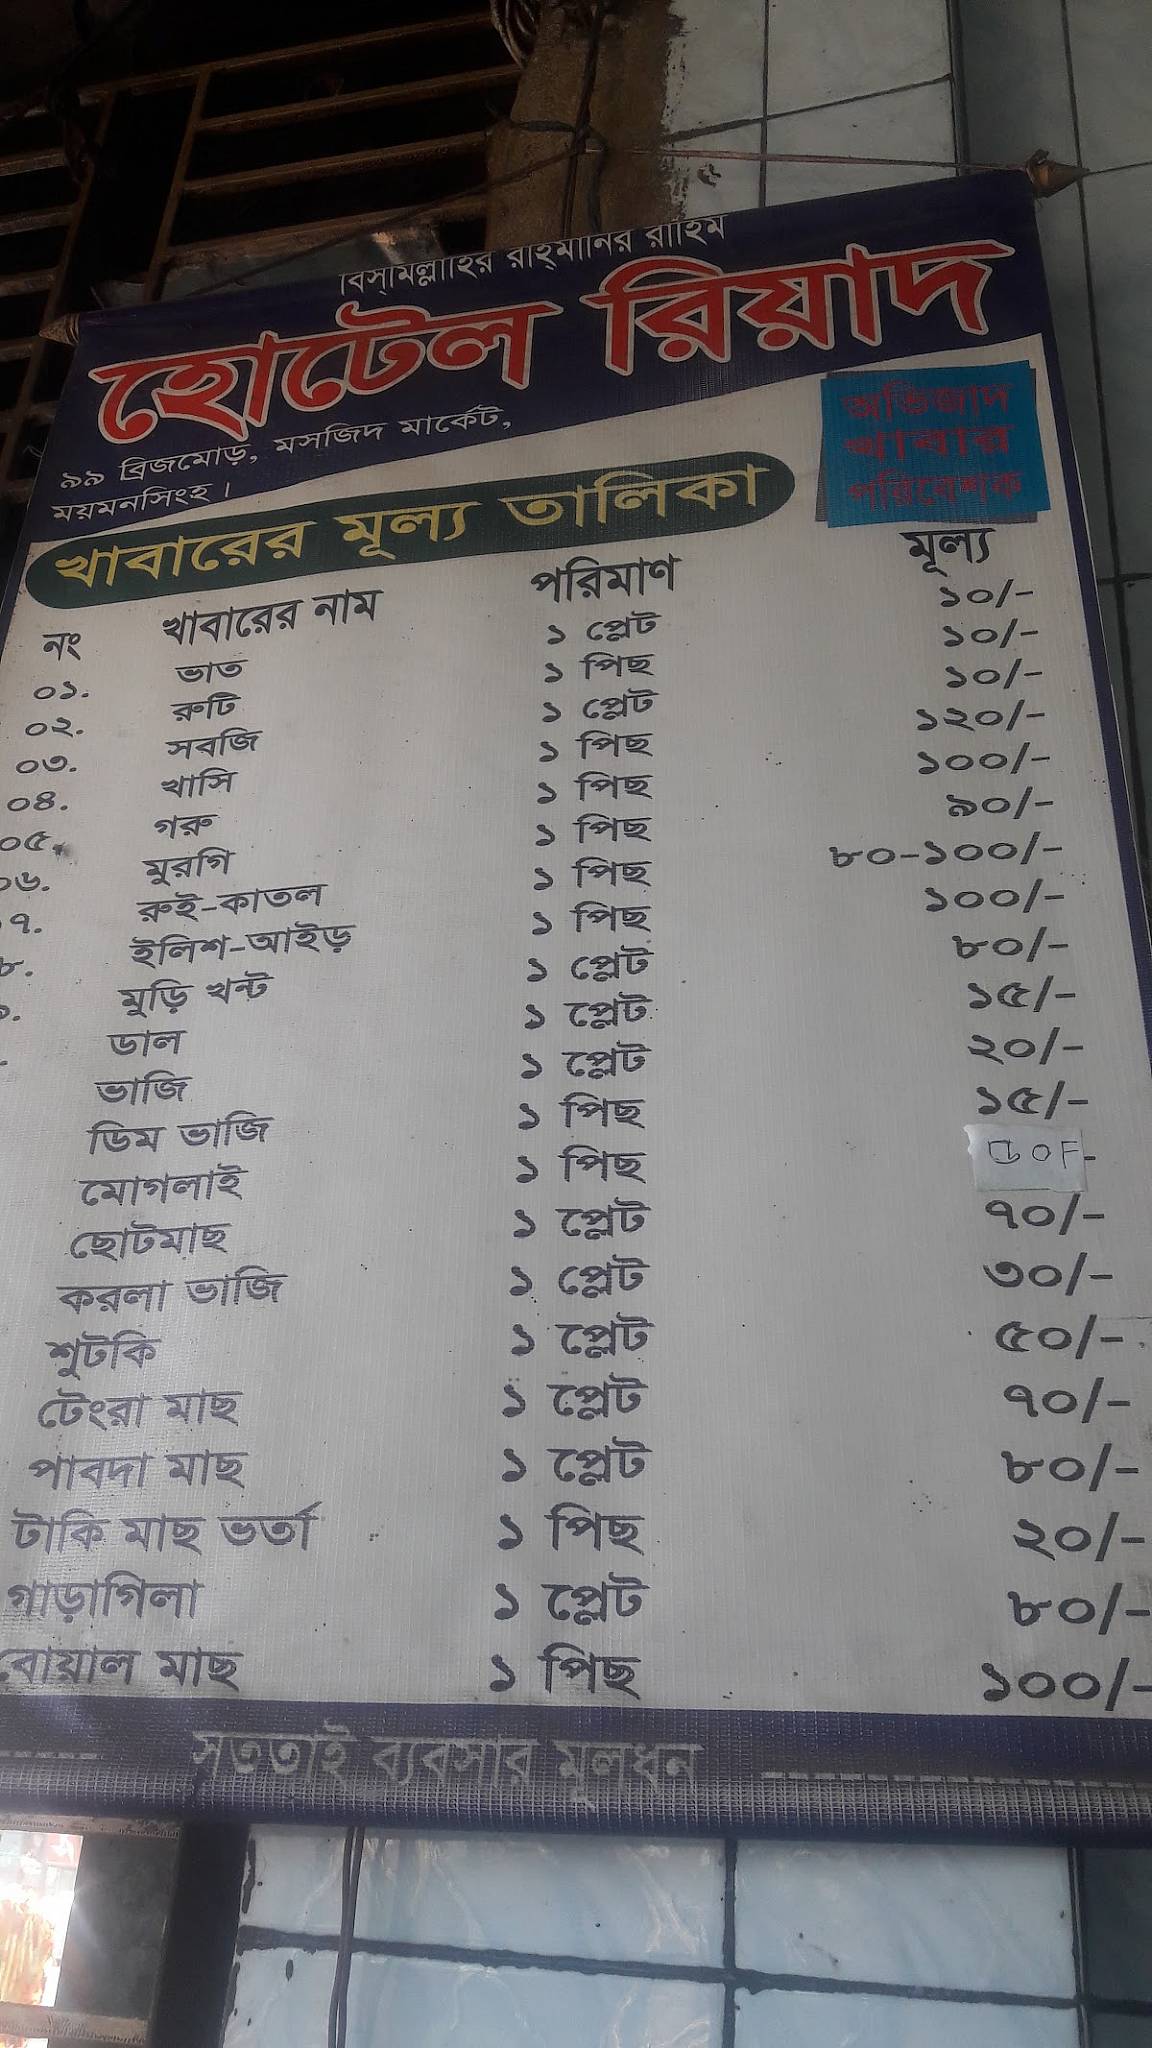 বিস্‌মিল্লাহির রাহ্‌মানির রাহিম
হোটেল রিয়াদ
৯৯ ব্রিজমোড়, মসজিদ মার্কেট,
ময়মনসিংহ।
অভিজাদ
খাবার
পরিবেশক
খাবারের মূল্য তালিকা
নং খাবারের নাম পরিমাণ মূল্য
০১. ভাত ১ প্লেট ১০/-
০২. রুটি ১ পিছ ১০/-
০৩. সবজি ১ প্লেট ১০/-
০৪. খাসি ১ পিছ ১২০/-
০৫. গরু ১ পিছ ১০০/-
৬. মুরগি ১ পিছ ৯০/-
৭. রুই-কাতল ১ পিছ ৮০-১০০/-
৮. ইলিশ-আইড় ১ পিছ ১০০/-
মুড়ি খন্ট ১ প্লেট ৮০/-
ডাল ১ প্লেট ১৫/-
ভাজি ১ প্লেট ২০/-
ডিম ভাজি ১ পিছ ১৫/-
মোগলাই ১ পিছ
ছোটমাছ ১ প্লেট ৭০/-
করলা ভাজি ১ প্লেট ৩০/-
শুটকি ১ প্লেট ৫০/-
টেংরা মাছ ১ প্লেট ৭০/-
পাবদা মাছ ১ প্লেট ৮০/-
টাকি মাছ ভর্তা ১ পিছ ২০/-
গাড়াগিলা ১ প্লেট ৮০/-
বোয়াল মাছ ১ পিছ ১০০/-
সততাই ব্যবসার মূলধন